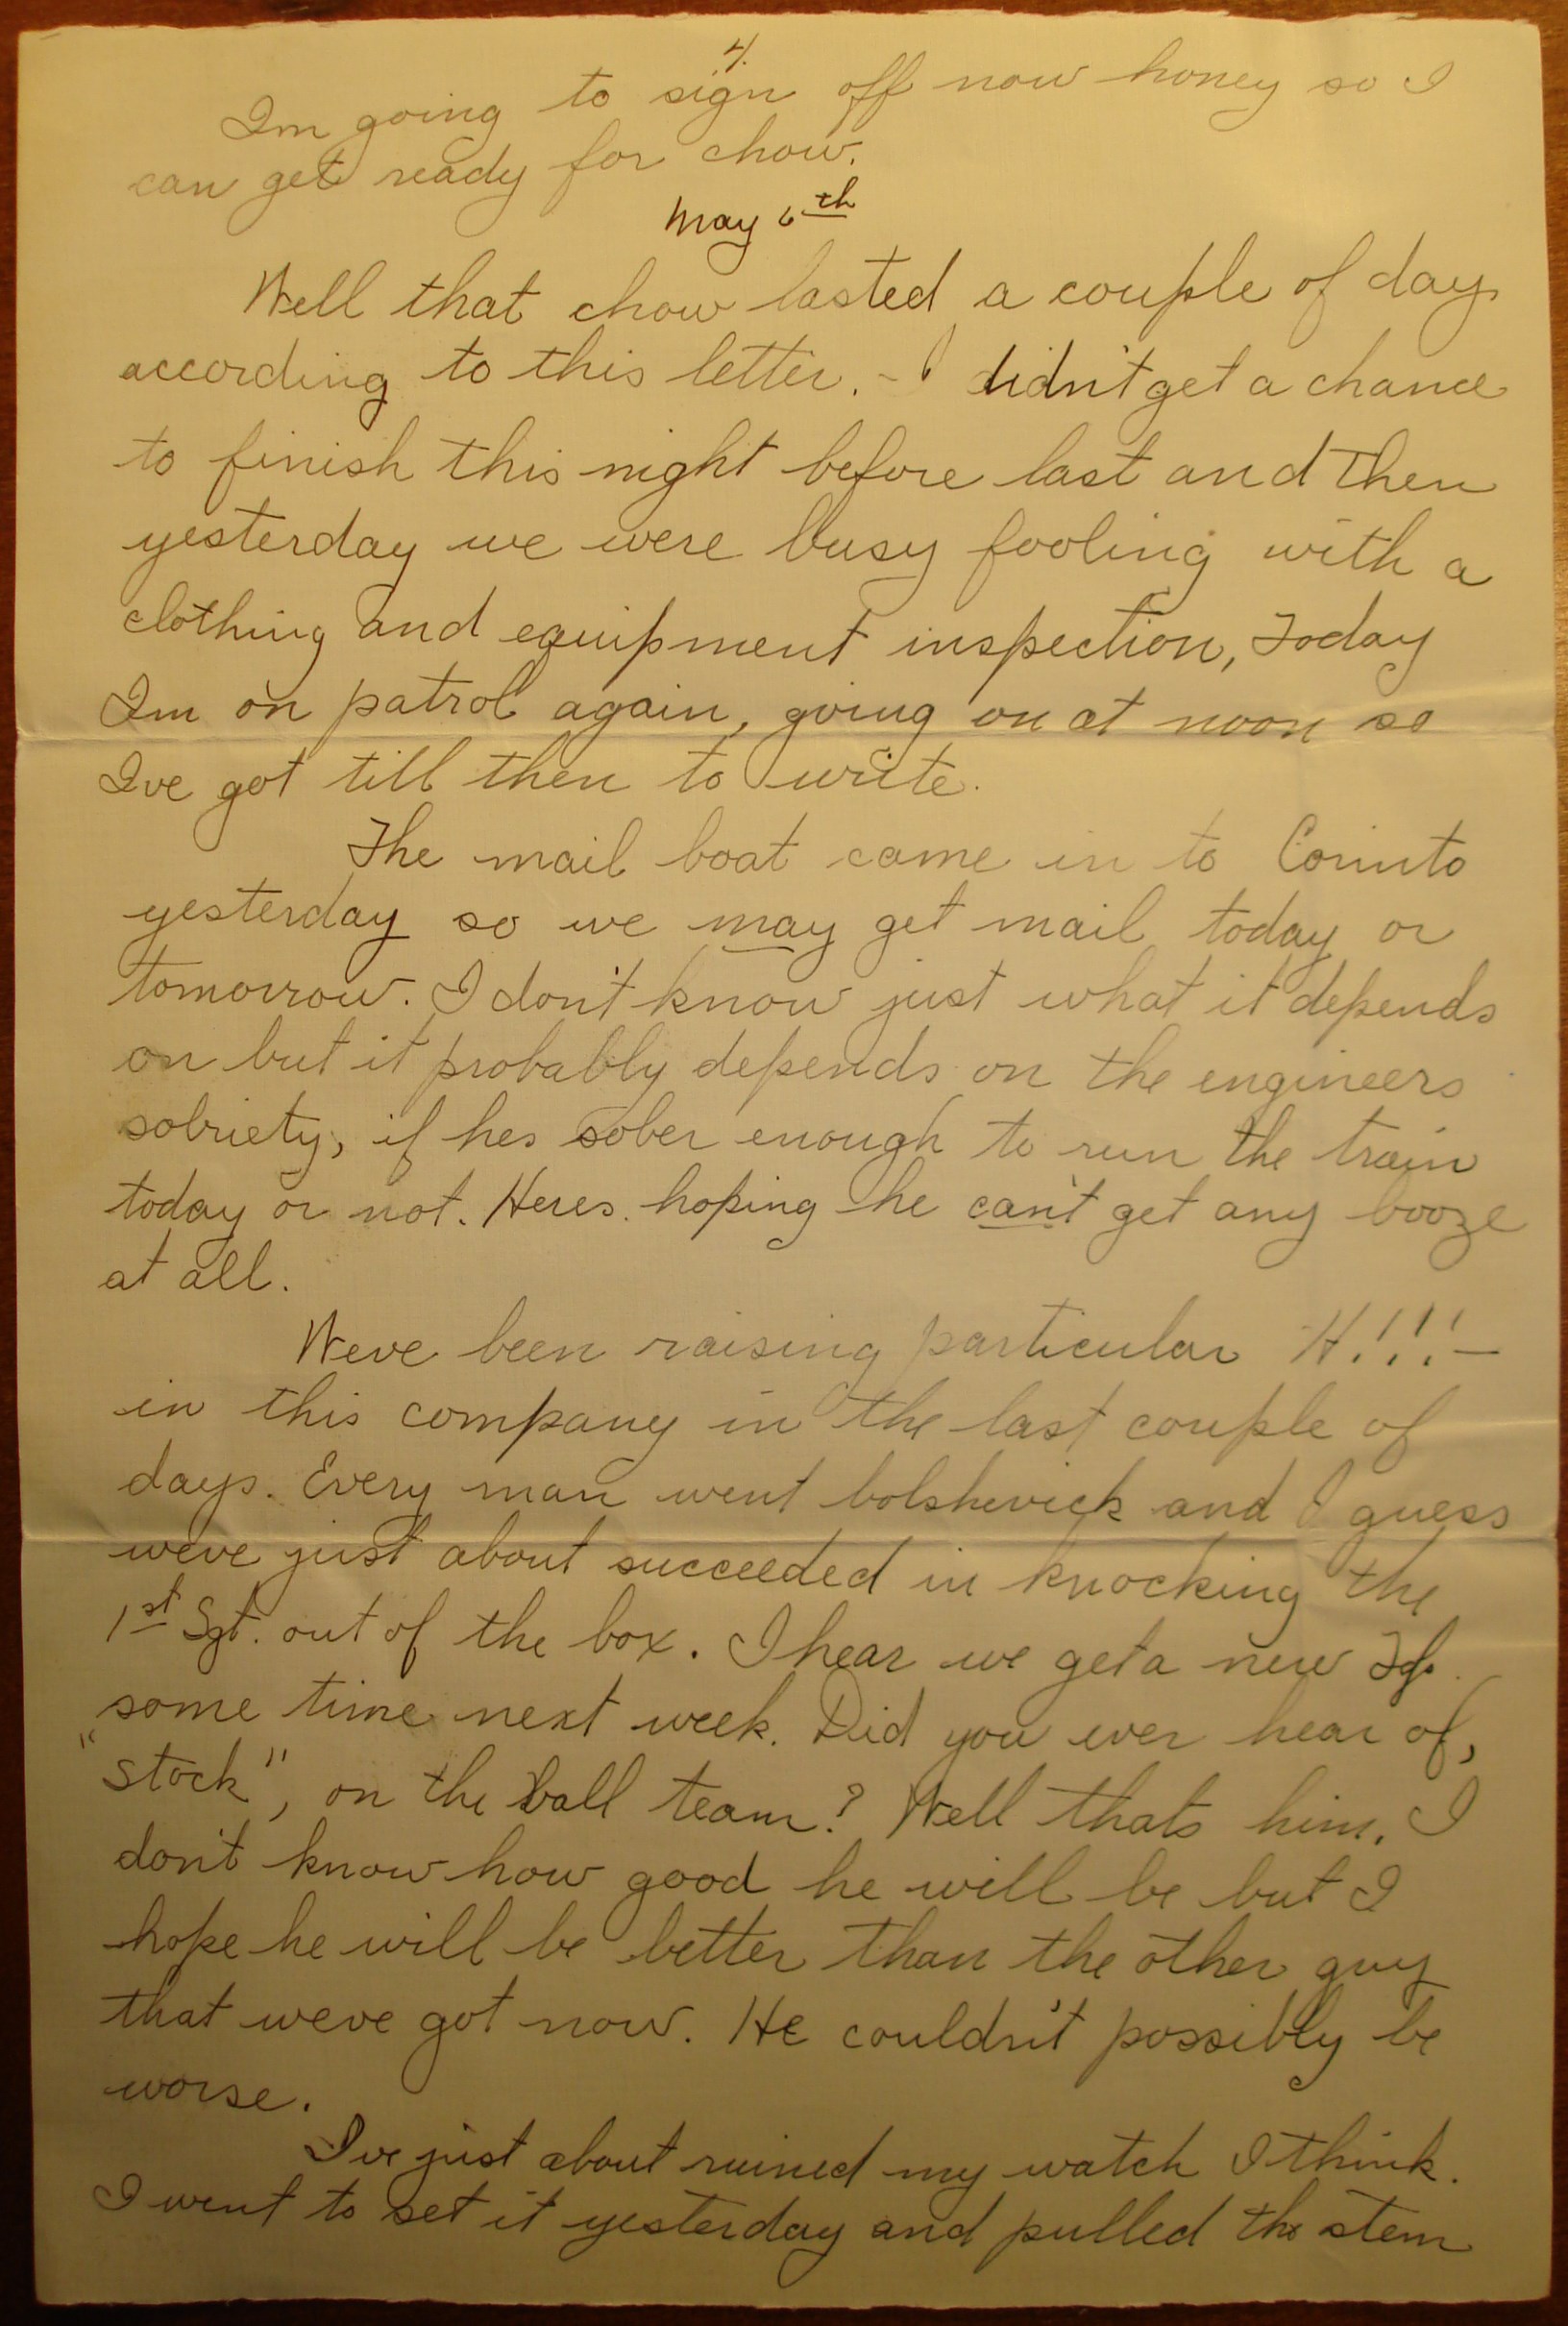 4.
Im going to sign off now honey so I
can get ready for chow.
May 6th
Well that chow lasted a couple of days
according to this letter. - I didn't get a chance
to finish this night before last and then
yesterday we were busy fooling with a
clothing and equipment inspection, Today
Im on patrol again, going on at noon so
Ive got till then to write.
The mail boat came in to Corinto
yesterday so we may get mail today or
tomorrow. I don't know just what it depends
on but it probably depends on the engineers
sobriety, if hes sober enough to run the train
today or not. Heres hoping he can't get any booze
at all.
Weve been raising particular H!!! —
in this company in the last couple of
days. Every man went bolshevick and I guess
weve just about succeeded in knocking the
1st Sgt. out of the box. I hear we get a new
some time next week. Did you ever hear of,
"Stock", on the ball team? Well thats him. I
don't know how good he will be but I
hope he will be better than the other guy
that weve got now. He couldn't possibly be
worse.
Ive just about ruined my watch I think.
I went to set it yesterday and pulled the stem